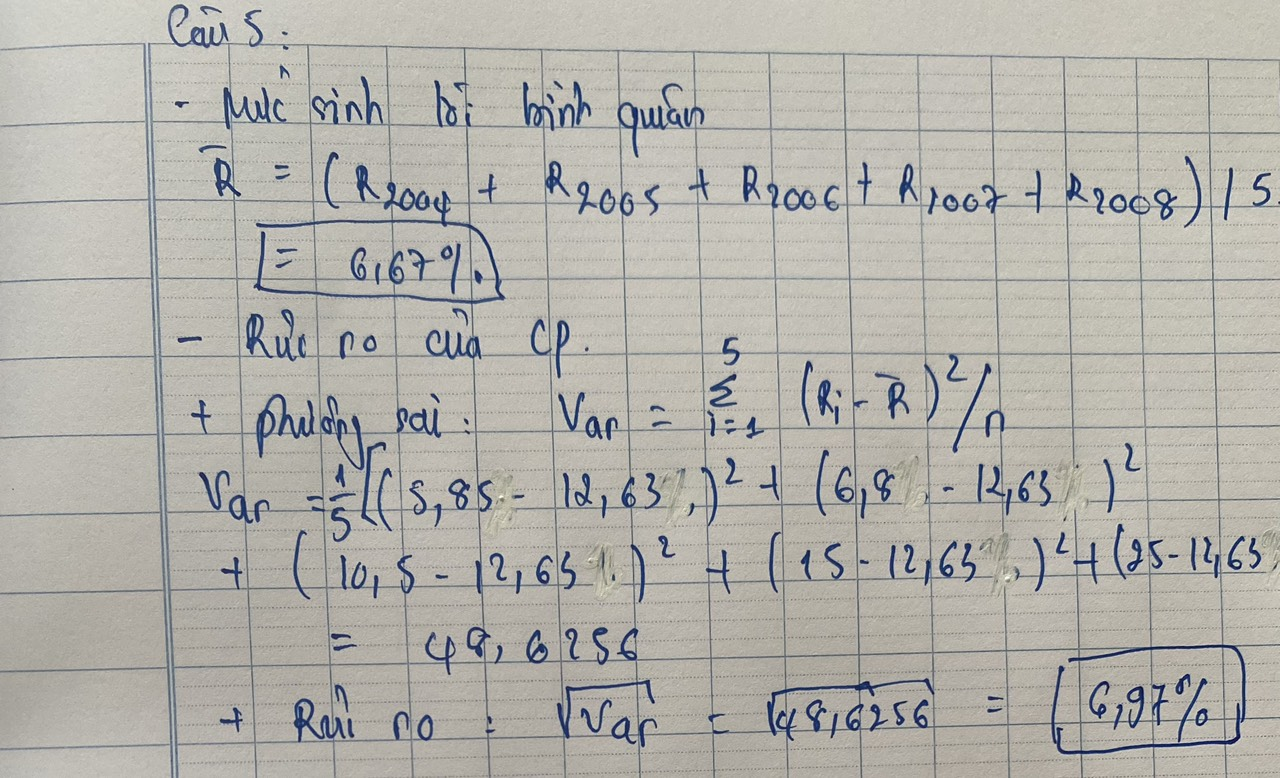 Câu 5:
- Mức sinh lời bình quân
R̄ = (R2004 + R2005 + R2006 + R2007 + R2008) / 5.
= 6,67%.
- Rủi ro của CP.
+ phương sai: Var = 5 Σ i=1 (Ri - R̄)²/n
Var = 1/5 [(5,85 - 12,63)² + (6,8 - 12,63)²
+ (10,5 - 12,63)² + (15 - 12,63)² + (25 - 12,63
= 48,6256
+ Rủi ro: √Var = √48,6256 = 6,97%